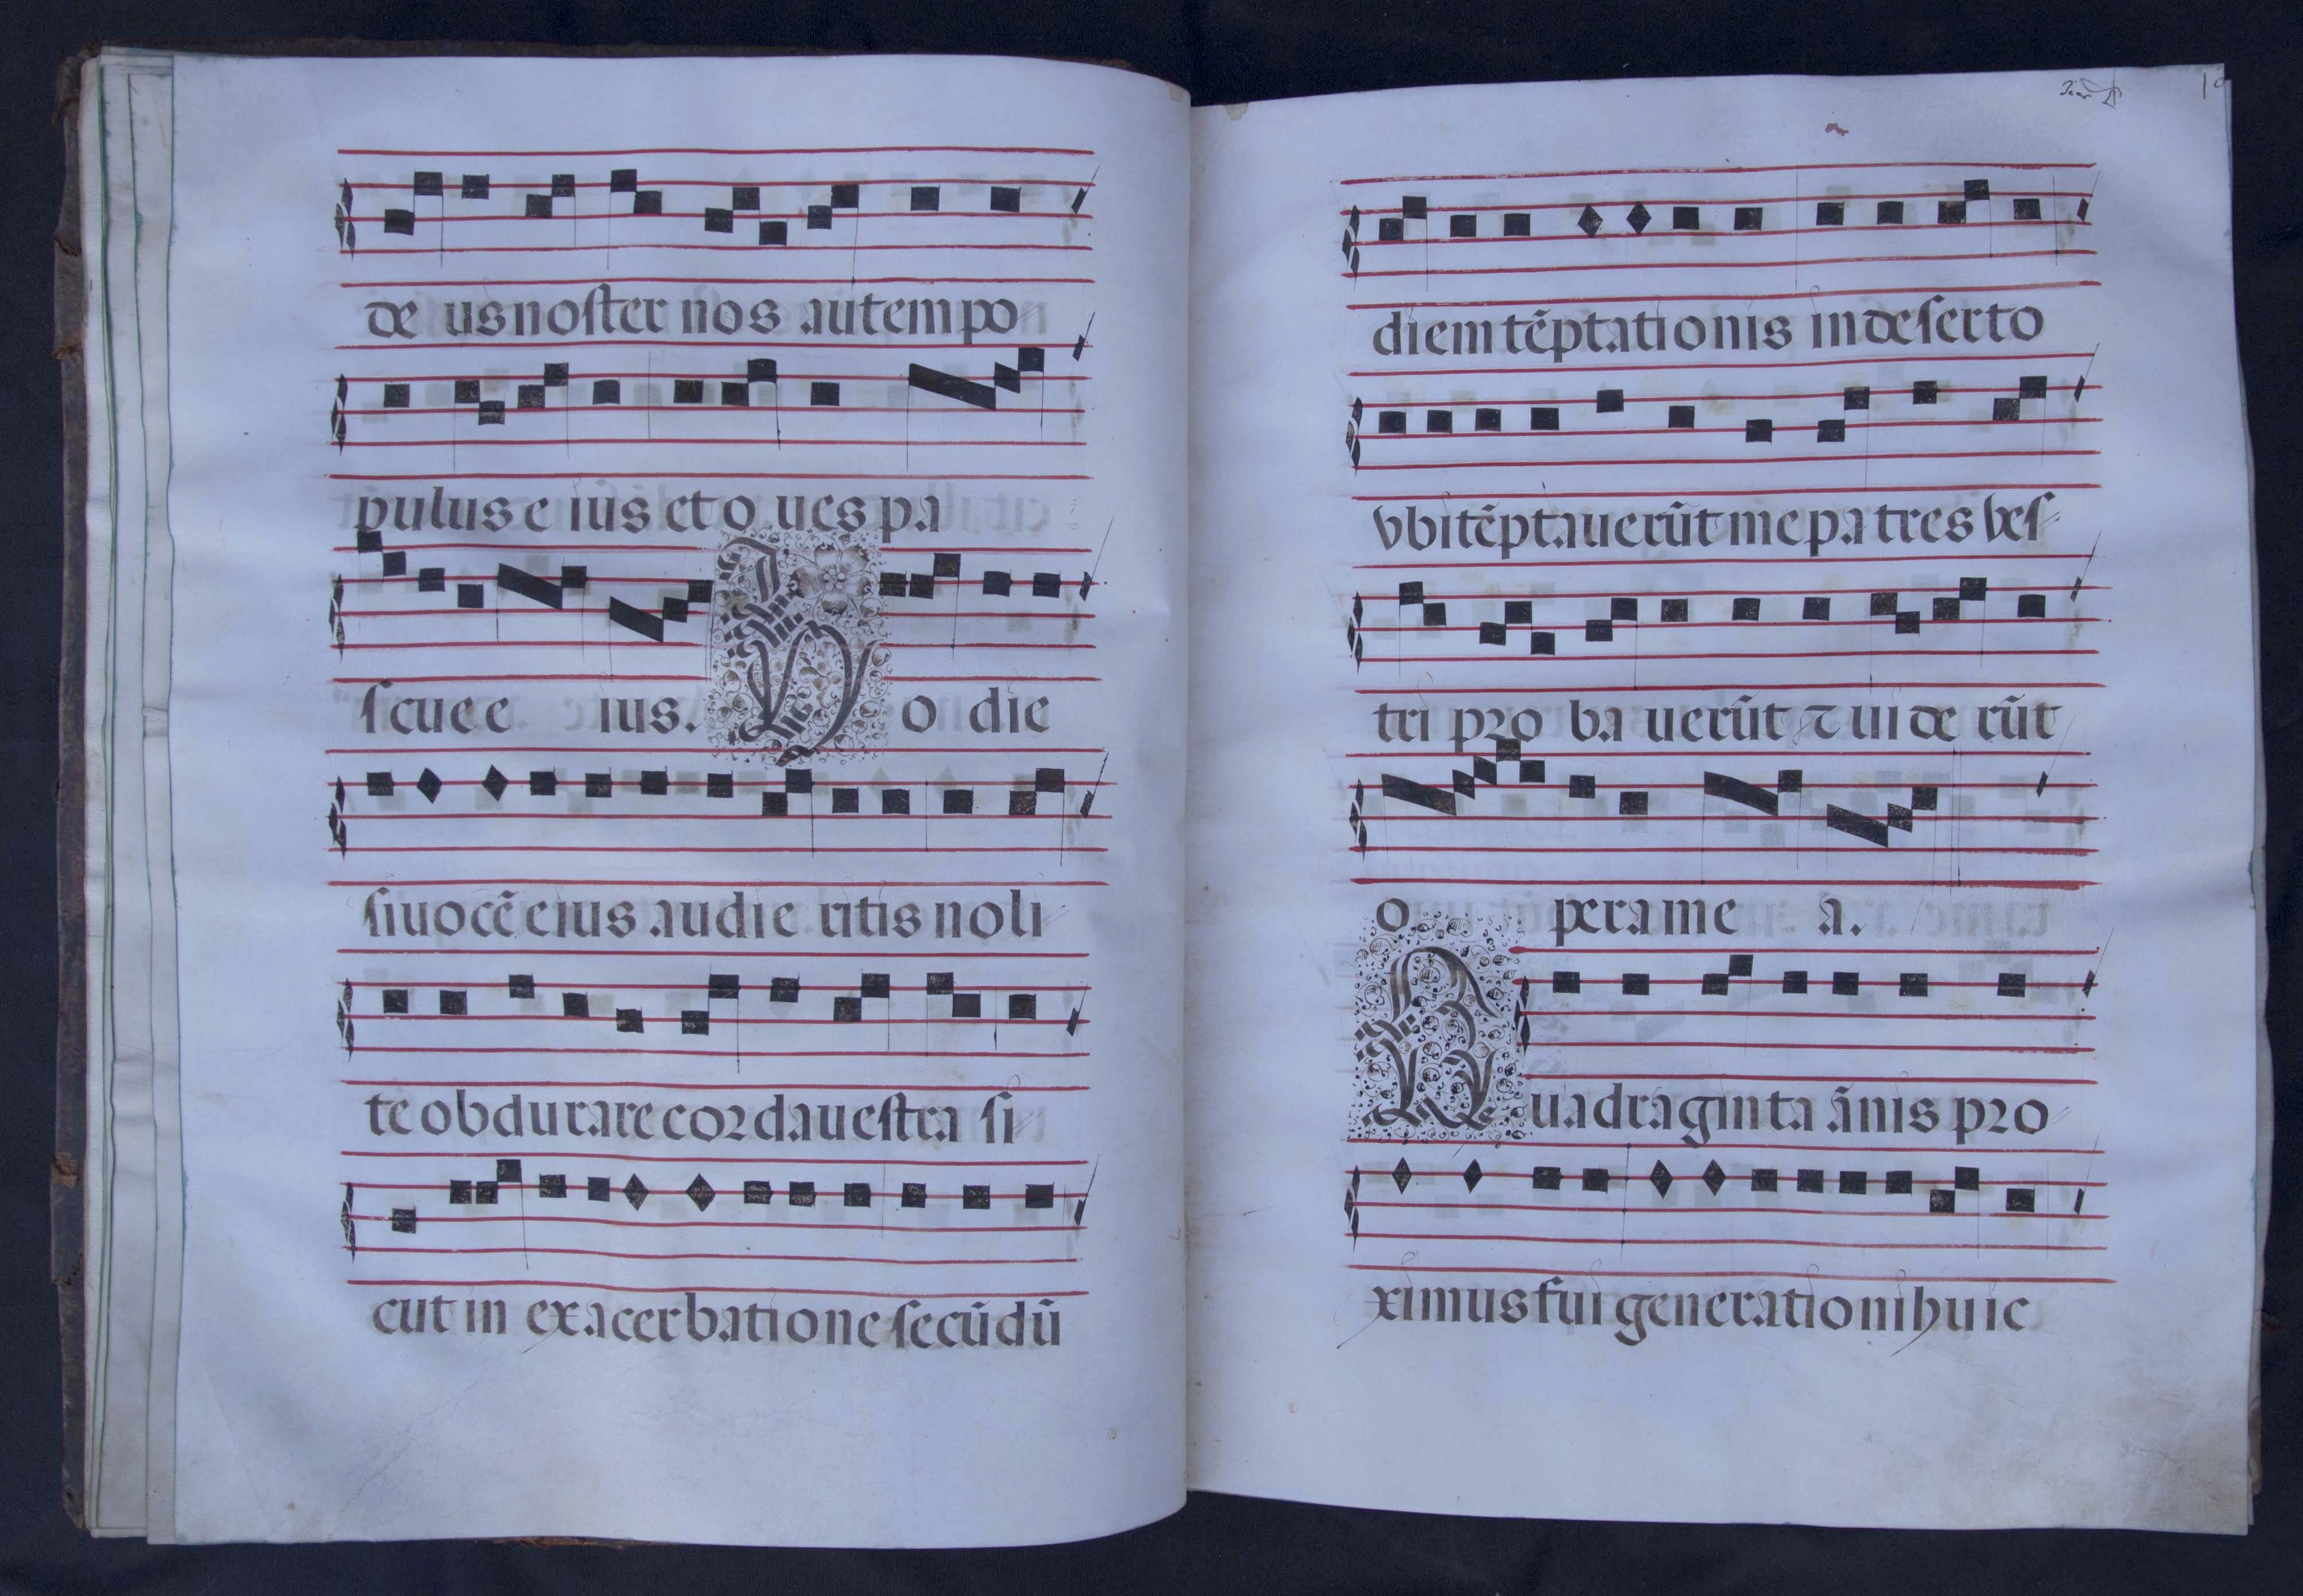 de us noster nos autem po
pulus e ius et o ues pa
scue e ius. Ho die
si uocē eius audie ritis noli
te obdurare corda uestra si
cut in exacerbatione secūdū
diem tēptationis in deserto
vbi tēptauerūt me patres ves
tri pro ba uerūt & ui de rūt
o pera me a.
Quadraginta ānis pro
ximus fui generationi huic